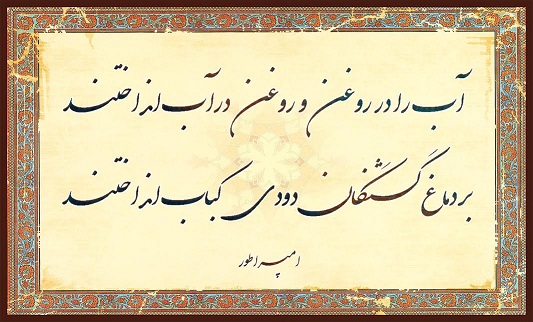 آب را در روغن و روغن در آب انداختند
بر دماغ گشنگان دودی کباب انداختند
امپراطور